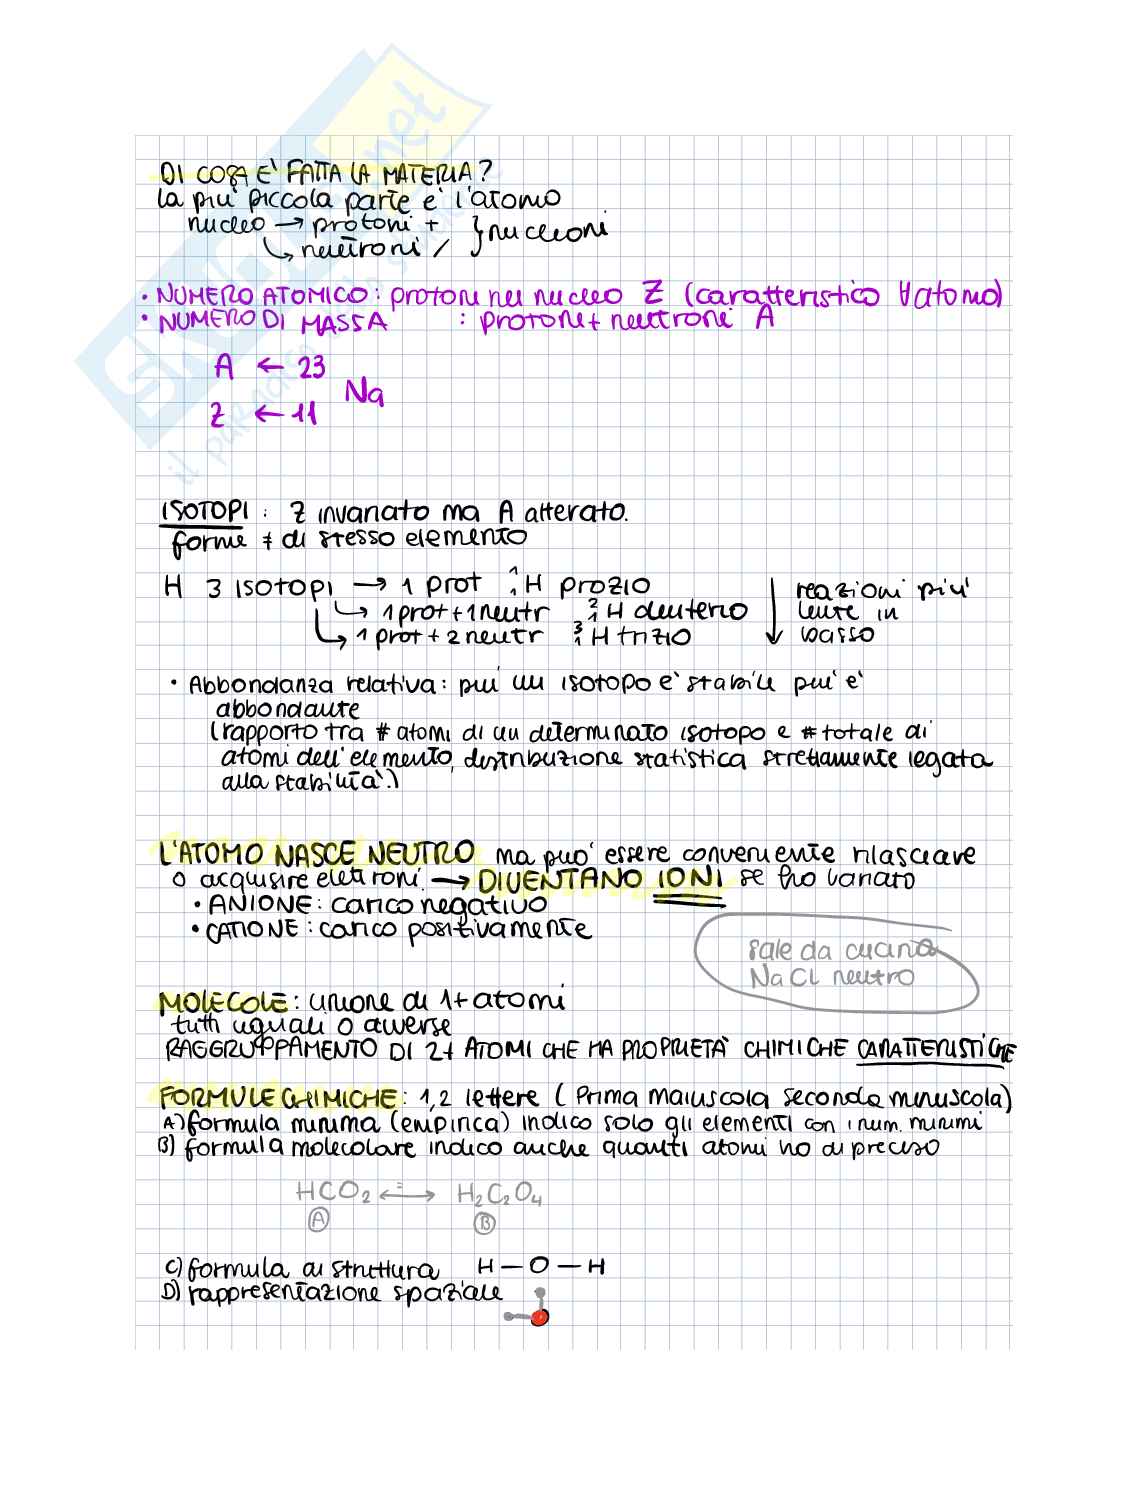 DI COSA E' FATTA LA MATERIA?
la piu' piccola parte e' l'atomo
nucleo → protoni + } nucleoni
↳ neutroni /
• NUMERO ATOMICO: protoni nel nucleo Z (caratteristico ∀atomo)
• NUMERO DI MASSA : protoni+ neutroni A
A ← 23
Na
Z ← 11
ISOTOPI : Z invariato ma A alterato.
forme ≠ di stesso elemento
H 3 ISOTOPI → 1 prot ¹₁H prozio
↳ 1 prot + 1 neutr ²₁H deuterio
↳ 1 prot + 2 neutr ³₁H trizio
↓ reazioni piu'
lente in
basso
• Abbondanza relativa: piu' un isotopo e' stabile piu' e'
abbondante
(rapporto tra # atomi di un determinato isotopo e # totale di
atomi dell'elemento, distribuzione statistica strettamente legata
alla stabilità.)
L'ATOMO NASCE NEUTRO ma puo' essere conveniente rilasciare
o acquisire elettroni. → DIVENTANO IONI se ho variato
• ANIONE: carico negativo
• CATIONE: carico positivamente
sale da cucina
NaCl neutro
MOLECOLE: unione di 1+ atomi
tutti uguali o diverse
RAGGRUPPAMENTO DI 2+ ATOMI CHE HA PROPRIETA' CHIMICHE CARATTERISTICHE
FORMULE CHIMICHE: 1,2 lettere (Prima Maiuscola seconda minuscola)
A) formula minima (empirica) indico solo gli elementi con i num. minimi
B) formula molecolare indico anche quanti atomi ho di preciso
HCO₂ ⟷ H₂C₂O₄
A B
C) formula di struttura H — O — H
D) rappresentazione spaziale